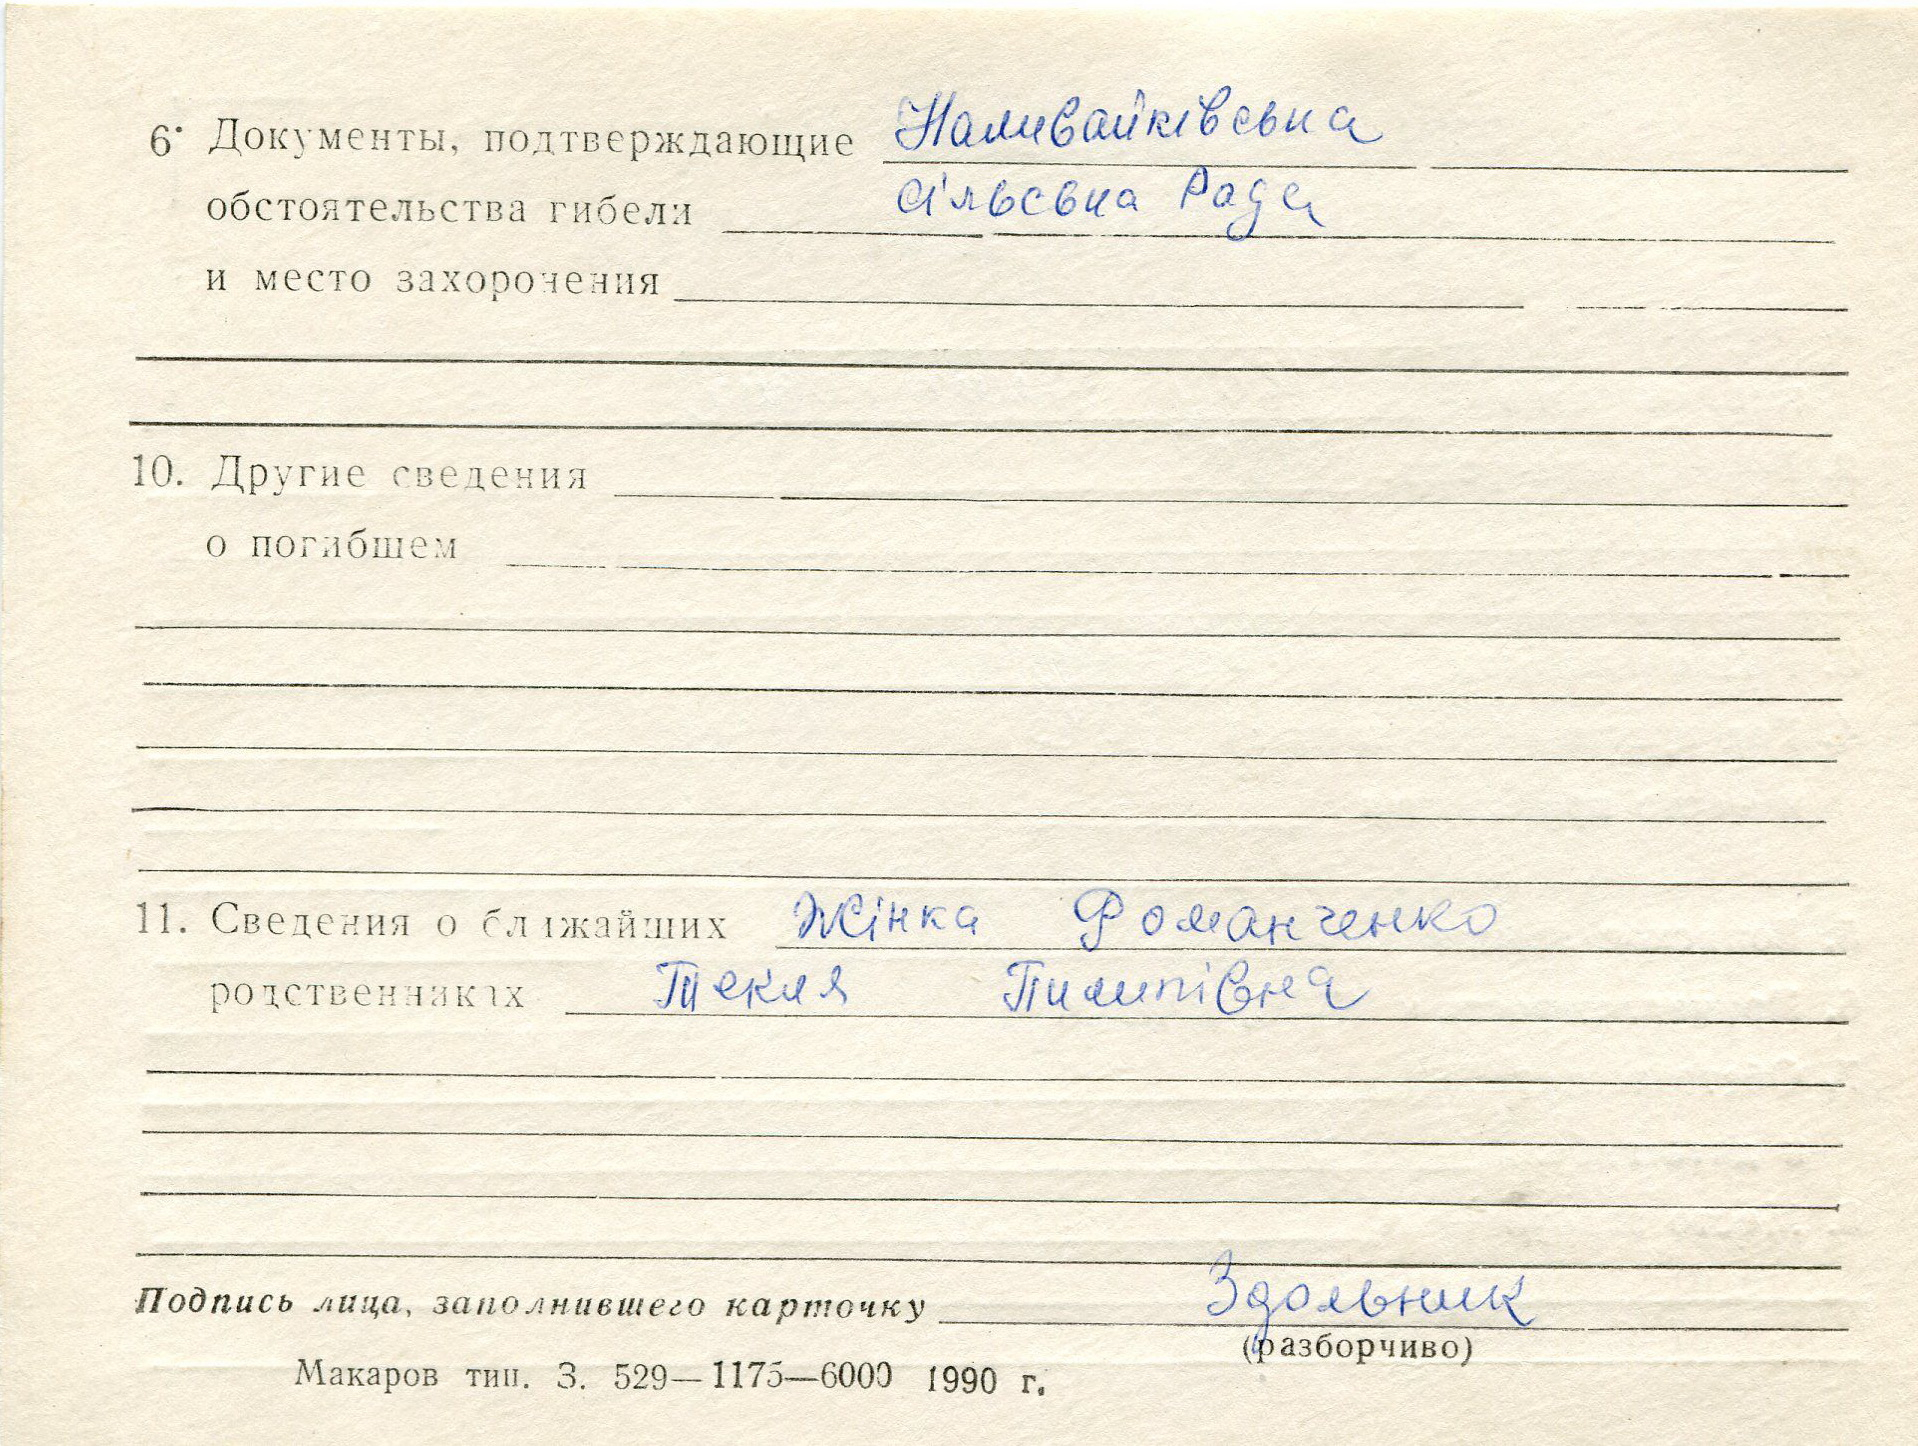 6. Документы, подтверждающие Наливайківська
обстоятельства гибели сільська Рада
и место захоронения
10. Другие сведения
о погибшем
11. Сведения о ближайших Жінка Романченко
родственниках Текля Пилипівна
Подпись лица, заполнившего карточку Здольник
(разборчиво)
Макаров тип. З. 529—1175—6000 1990 г.